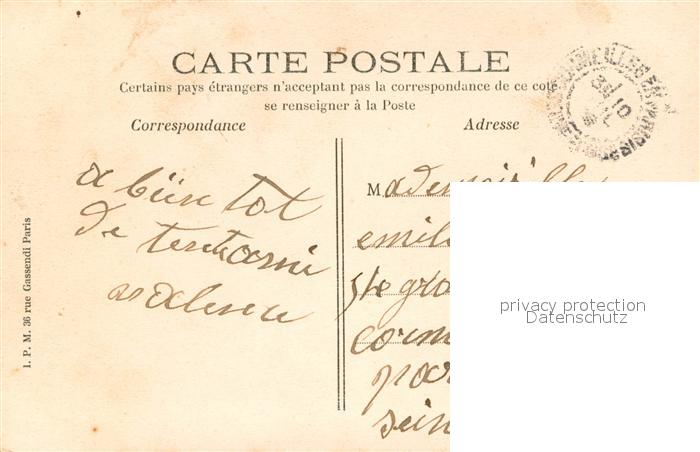 CARTE POSTALE
Certains pays étrangers n'acceptant pas la correspondance de ce coté
se renseigner à la Poste
Correspondance
Adresse
a bien tot
de
Mademoiselle
emil
gro
corm
par
sein
I. P. M. 36 rue Gassendi Paris
privacy protection
Datenschutz